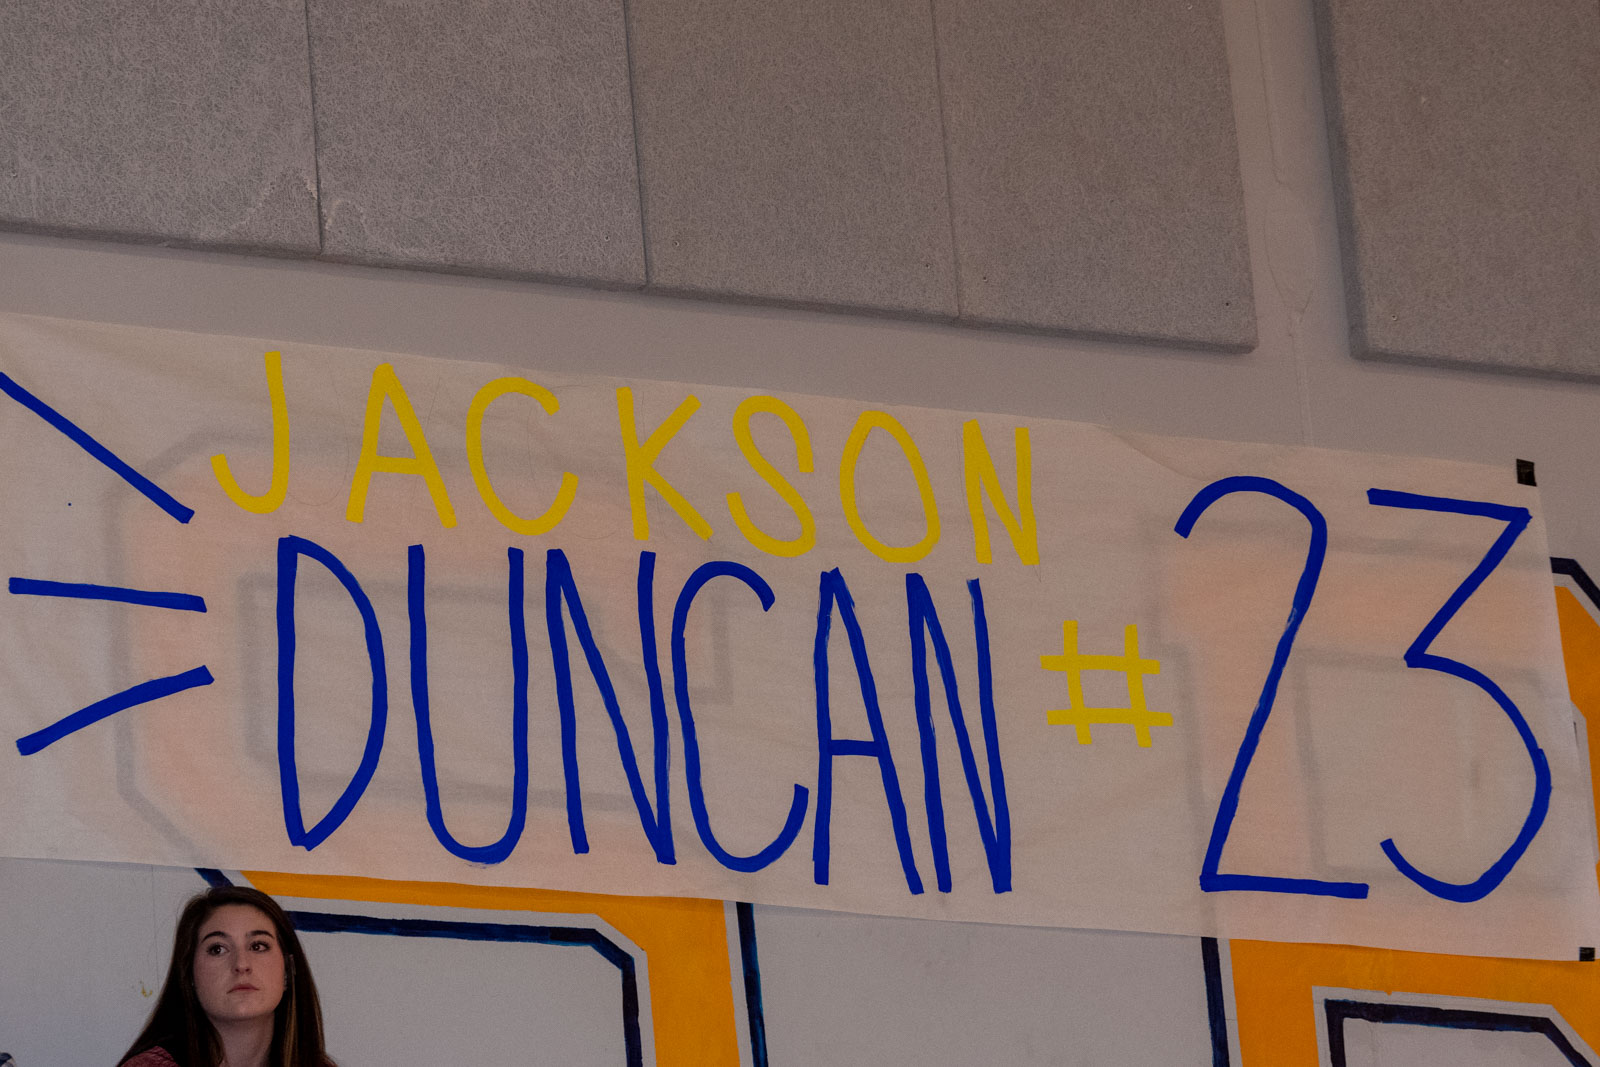 JACKSON
DUNCAN #23